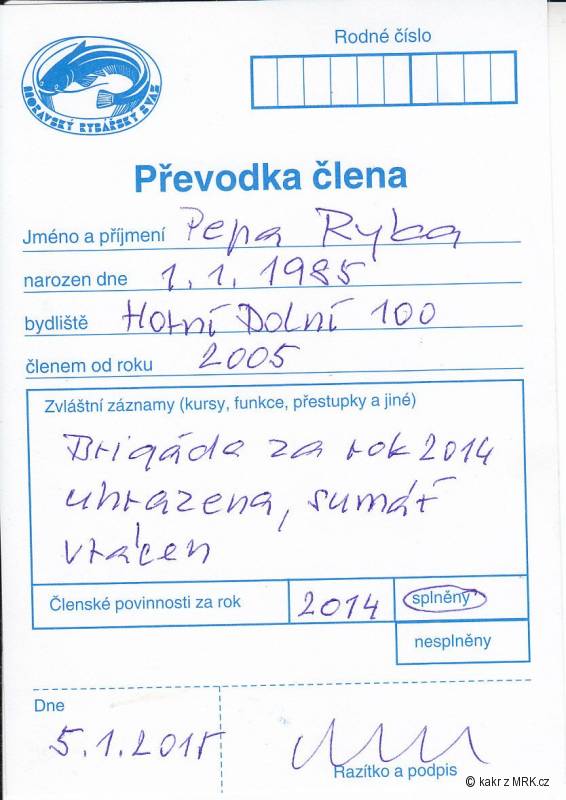 MORAVSKÝ RYBÁŘSKÝ SVAZ
Rodné číslo
Převodka člena
Jméno a příjmení Pepa Ryba
narozen dne 1.1.1985
bydliště Horní Dolní 100
členem od roku 2005
Zvláštní záznamy (kursy, funkce, přestupky a jiné)
Brigáda za rok 2014
uhrazena, sumář
vrácen
Členské povinnosti za rok 2014 splněny
nesplněny
Dne
5.1.2015
Razítko a podpis
© kakr z MRK.cz